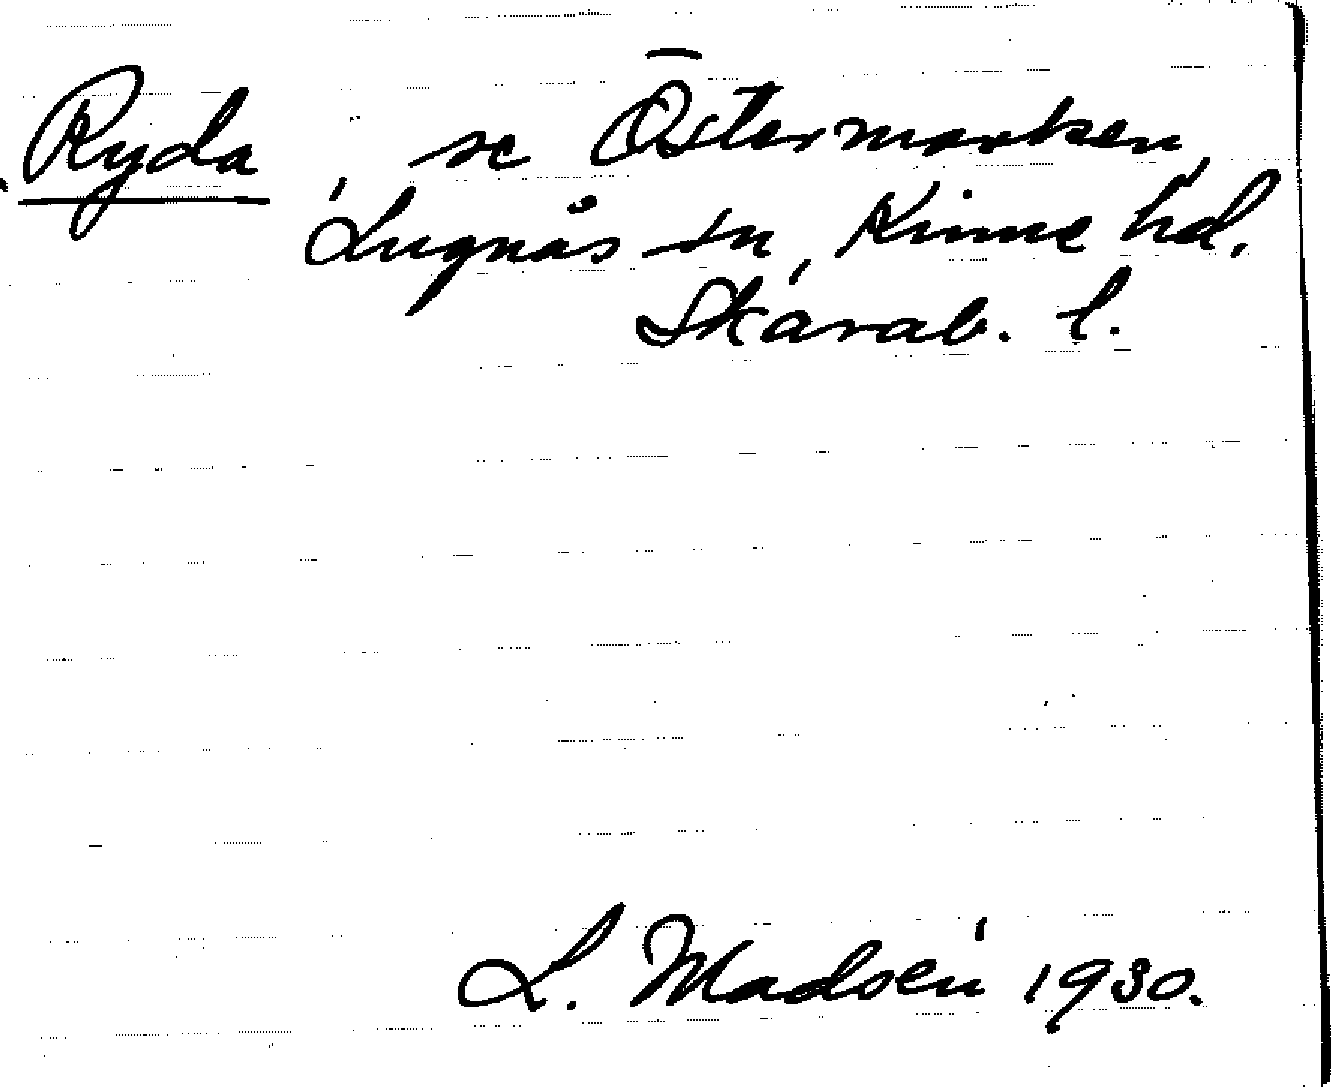 Ryda, se Östermarken,
Lugnås sn, Kinne hd,
Skarab. l.
L. Madsén 1930.